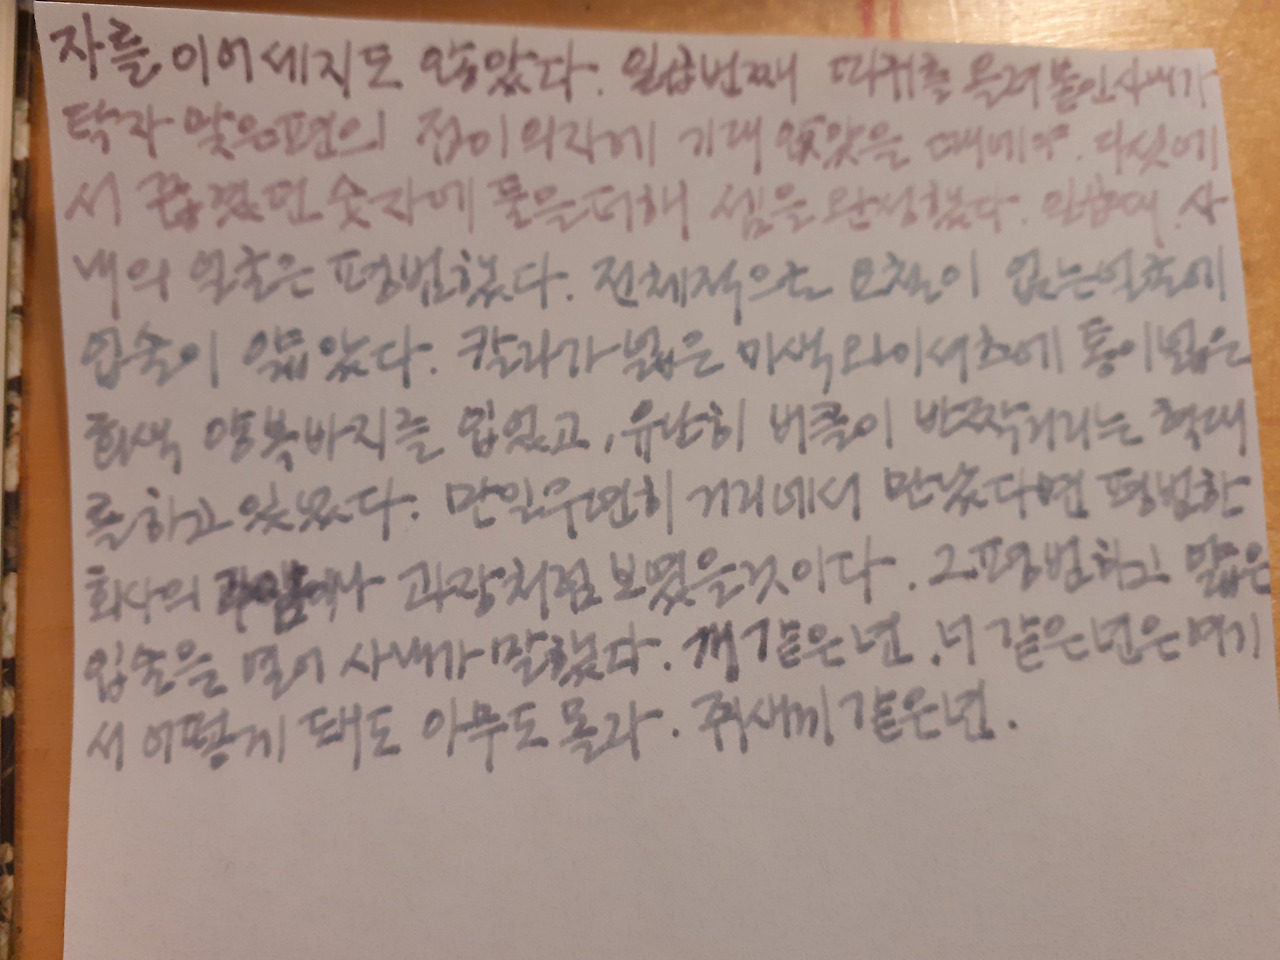 자를 이어 세지도 않았다. 일곱번째 따귀를 올려붙인 사내가
탁자 맞은편의 접이의자에 기대 앉았을 때에야. 다섯에
서 끊겼던 숫자에 둘을 더해 셈을 완성했다. 일곱대. 사
내의 얼굴은 평범했다. 전체적으로 요철이 없는 얼굴에
입술이 얇았다. 칼라가 넓은 미색 와이셔츠에 통이 넓은
회색 양복바지를 입었고, 유난히 버클이 반짝거리는 혁대
를 하고 있었다. 만일 우연히 거리에서 만났다면 평범한
회사의 과장처럼 보였을 것이다. 그 평범하고 얇은
입술을 열어 사내가 말했다. 개 같은 년. 너 같은 년은 여기
서 어떻게 돼도 아무도 몰라. 쥐새끼 같은 년.